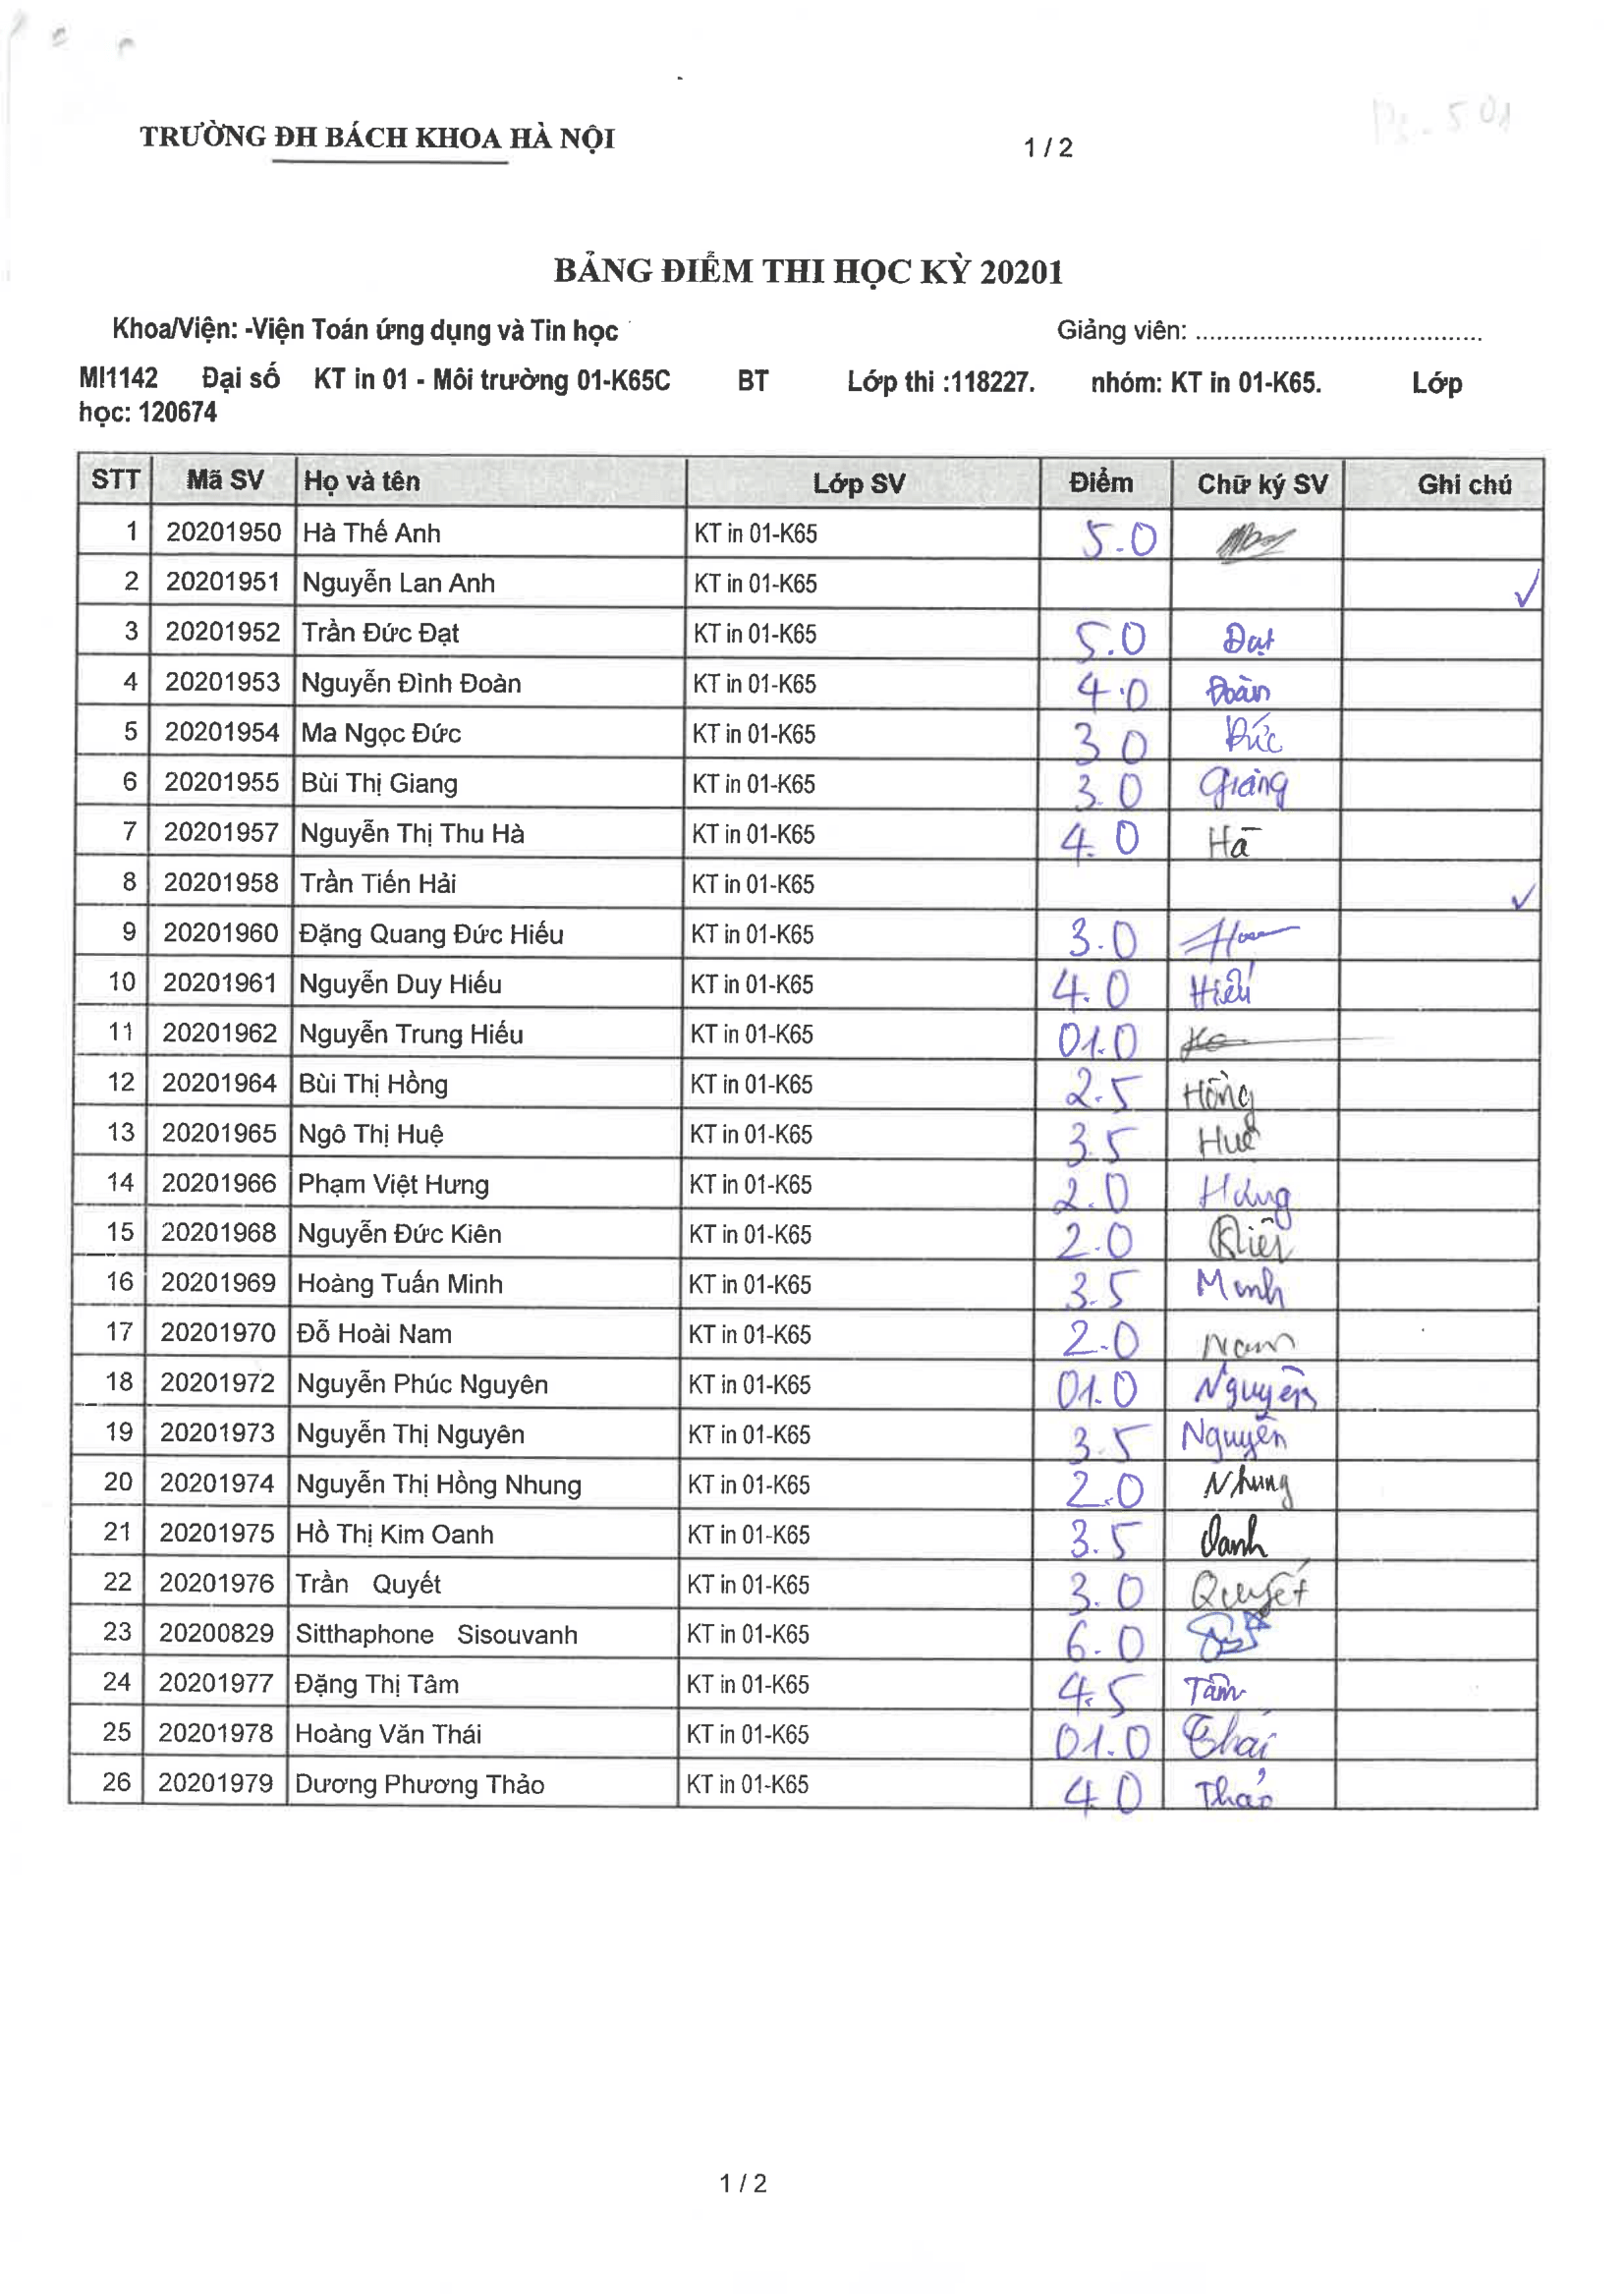 TRƯỜNG ĐH BÁCH KHOA HÀ NỘI 1 / 2
BẢNG ĐIỂM THI HỌC KỲ 20201
Khoa/Viện: -Viện Toán ứng dụng và Tin học Giảng viên: ........................................
MI1142 Đại số KT in 01 - Môi trường 01-K65C BT Lớp thi :118227. nhóm: KT in 01-K65. Lớp
học: 120674
STT Mã SV Họ và tên Lớp SV Điểm Chữ ký SV Ghi chú
1 20201950 Hà Thế Anh KT in 01-K65 5.0
2 20201951 Nguyễn Lan Anh KT in 01-K65 ✓
3 20201952 Trần Đức Đạt KT in 01-K65 5.0 Đạt
4 20201953 Nguyễn Đình Đoàn KT in 01-K65 4.0 Đoàn
5 20201954 Ma Ngọc Đức KT in 01-K65 3 0 Đức
6 20201955 Bùi Thị Giang KT in 01-K65 3.0 Giang
7 20201957 Nguyễn Thị Thu Hà KT in 01-K65 4.0 Hà
8 20201958 Trần Tiến Hải KT in 01-K65 ✓
9 20201960 Đặng Quang Đức Hiếu KT in 01-K65 3.0
10 20201961 Nguyễn Duy Hiếu KT in 01-K65 4.0 Hiếu
11 20201962 Nguyễn Trung Hiếu KT in 01-K65 01.0
12 20201964 Bùi Thị Hồng KT in 01-K65 2.5 Hồng
13 20201965 Ngô Thị Huệ KT in 01-K65 3.5 Huệ
14 20201966 Phạm Việt Hưng KT in 01-K65 2.0 Hưng
15 20201968 Nguyễn Đức Kiên KT in 01-K65 2.0 Kiên
16 20201969 Hoàng Tuấn Minh KT in 01-K65 3.5 Minh
17 20201970 Đỗ Hoài Nam KT in 01-K65 2.0 Nam
18 20201972 Nguyễn Phúc Nguyên KT in 01-K65 01.0 Nguyên
19 20201973 Nguyễn Thị Nguyên KT in 01-K65 3.5 Nguyên
20 20201974 Nguyễn Thị Hồng Nhung KT in 01-K65 2.0 Nhung
21 20201975 Hồ Thị Kim Oanh KT in 01-K65 3.5 Oanh
22 20201976 Trần Quyết KT in 01-K65 3.0 Quyết
23 20200829 Sitthaphone Sisouvanh KT in 01-K65 6.0
24 20201977 Đặng Thị Tâm KT in 01-K65 4.5 Tâm
25 20201978 Hoàng Văn Thái KT in 01-K65 01.0 Thái
26 20201979 Dương Phương Thảo KT in 01-K65 4.0 Thảo
1 / 2